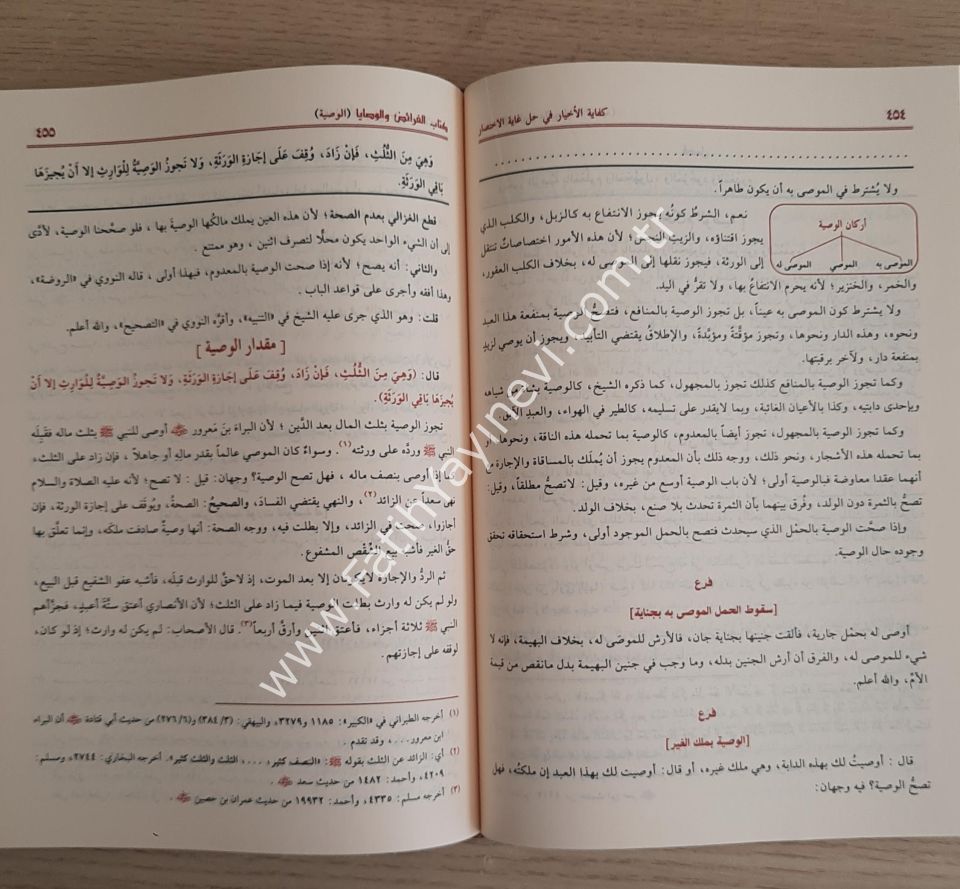 ٤٥٤
كفاية الأخيار في حل غاية الاختصار
ولا يُشترط في الموصى به أن يكون طاهراً.
أركان الوصية
الموصى به
الموصي
الموصى له
نعم، الشرطُ كونُه يجوز الانتفاع به كالزبل، والكلب الذي
يجوز اقتناؤه، والزيتِ النجس؛ لأن هذه الأمور اختصاصاتٌ تنتقل
إلى الورثة، فيجوز نقلها إلى الموصى له، بخلاف الكلب العقور،
والخمر، والخنزير؛ لأنه يحرم الانتفاعُ بها، ولا تقرُّ في اليد.
ولا يشترط كون الموصى به عيناً، بل تجوز الوصية بالمنافع، فتصحُّ الوصية بمنفعة هذا العبد
ونحوه، وهذه الدار ونحوها، وتجوز مؤقَّتةً ومؤبَّدةً، والإطلاقُ يقتضي التأبيد، ويجوز أن يوصي لزيدٍ
بمنفعة دار، ولآخر برقبتها.
وكما تجوز الوصية بالمنافع كذلك تجوز بالمجهول، كما ذكره الشيخ، كالوصية بشاةٍ من شياهه
وبإحدى دابتيه، وكذا بالأعيان الغائبة، وبما لايقدر على تسليمه، كالطير في الهواء، والعبدِ الآبق.
وكما تجوز الوصية بالمجهول، تجوز أيضاً بالمعدوم، كالوصية بما تحمله هذه الناقة، ونحوها، أو
بما تحمله هذه الأشجار، ونحو ذلك، ووجه ذلك بأن المعدوم يجوز أن يُملَك بالمساقاة والإجارة مع
أنهما عقدا معاوضة فبالوصية أولى؛ لأن باب الوصية أوسع من غيره، وقيل: لا تصحُّ مطلقاً، وقيل:
تصحُّ بالثمرة دون الولد، وفُرق بينهما بأن الثمرة تحدث بلا صنع، بخلاف الولد.
وإذا صحَّت الوصية بالحمْل الذي سيحدث فتصح بالحمل الموجود أولى، وشرط استحقاقه تحقق
وجوده حال الوصية.
فرع
[سقوط الحمل الموصى به بجناية]
أوصى له بحمْل جارية، فألقت جنينها بجناية جان، فالأرش للموصَى له، بخلاف البهيمة، فإنه لا
شيء للموصى له، والفرق أن أرش الجنين بدله، وما وجب في جنين البهيمة بدل مانقص من قيمة
الأمّ، والله أعلم.
فرع
[الوصية بملك الغير]
قال: أوصيتُ لك بهذه الدابة، وهي ملك غيره، أو قال: أوصيت لك بهذا العبد إن ملكتُه، فهل
تصحُّ الوصية؟ فيه وجهان:
كتاب الفرائض والوصايا (الوصية)
٤٥٥
وَهِيَ مِنَ الثُّلُثِ، فَإِنْ زَادَ، وُقِفَ عَلَى إِجَازَةِ الوَرَثَةِ، وَلَا تَجوزُ الوَصِيَّةُ لِلْوَارِثِ إلا أَنْ يُجيزَهَا
بَاقِي الوَرَثَةِ.
قطع الغزالي بعدم الصحة؛ لأن هذه العين يملك مالكُها الوصيةَ بها، فلو صحَّحنا الوصية، لأدَّى
إلى أن الشيء الواحد يكون محلًّا لتصرف اثنين، وهو ممتنع.
والثاني: أنه يصح؛ لأنه إذا صحت الوصية بالمعدوم، فبهذا أولى، قاله النووي في «الروضة»،
وهذا أفقه وأجرى على قواعد الباب.
قلت: وهو الذي جرى عليه الشيخ في «التنبيه»، وأقرَّه النووي في «التصحيح»، والله أعلم.
[مقدار الوصية]
قال: (وَهِيَ مِنَ الثُّلُثِ، فَإِنْ زَادَ، وُقِفَ عَلَى إِجَازَةِ الوَرَثَةِ، وَلَا تَجوزُ الوَصِيَّةُ لِلْوَارِثِ إلا أَنْ
يُجيزَهَا بَاقِي الوَرَثَةِ).
تجوز الوصية بثلث المال بعد الدَّين؛ لأن البراءَ بنَ مَعرور ﵁ أوصى للنبي ﷺ بثلث ماله فقَبِلَه
النبي ﷺ وردَّه على ورثته(١). وسواءٌ كان الموصي عالماً بقدر مالِهِ أو جاهلاً، فإن زاد على الثلث،
كما إذا أوصى بنصف ماله، فهل تصح الوصية؟ وجهان: قيل: لا تصح؛ لأنه عليه الصلاة والسلام
نهى سعداً عن الزائد(٢)، والنهي يقتضي الفسادَ، والصحيحُ: الصحةُ، ويُوقَف على إجازة الورثة، فإن
أجازوا، صحت في الزائد، وإلا بطلت فيه، ووجه الصحة: أنها وصيةٌ صادفت ملكَه، وإنما تعلَّق بها
حقُّ الغير فأشبه بيع الشِّقْص المشفوع.
ثم الردُّ والإجازة لا يعتبران إلا بعد الموت، إذ لاحقَّ للوارث قبلَه، فأشبه عفو الشفيع قبل البيع،
ولو لم يكن له وارث بطلت الوصية فيما زاد على الثلث؛ لأن الأنصاري أعتق ستَّةَ أعبدٍ، فجزَّأهم
النبي ﷺ ثلاثة أجزاء، فأعتق اثنين وأرقَّ أربعاً(٣). قال الأصحاب: لم يكن له وارث؛ إذ لو كان،
لوقفه على إجازتهم.
(١) أخرجه الطبراني في «الكبير»: ١١٨٥ و٣٢٧٩ والبيهقي: (٣/ ٣٨٤) و(٢٧٦/٦) من حديث أبي قتادة ﵁ أن البراء
ابن معرور....، وقد تقدم.
(٢) أي: الزائد عن الثلث بقوله ﷺ: «النصف كثير، ....، الثلث والثلث كثير». أخرجه البخاري: ٢٧٤٤، ومسلم:
٤٢٠٩، وأحمد: ١٤٨٢ من حديث سعد ﵁.
(٣) أخرجه مسلم: ٤٣٣٥، وأحمد: ١٩٩٣٢ من حديث عمران بن حصين ﵁.
www.FatihYayinevi.com.tr